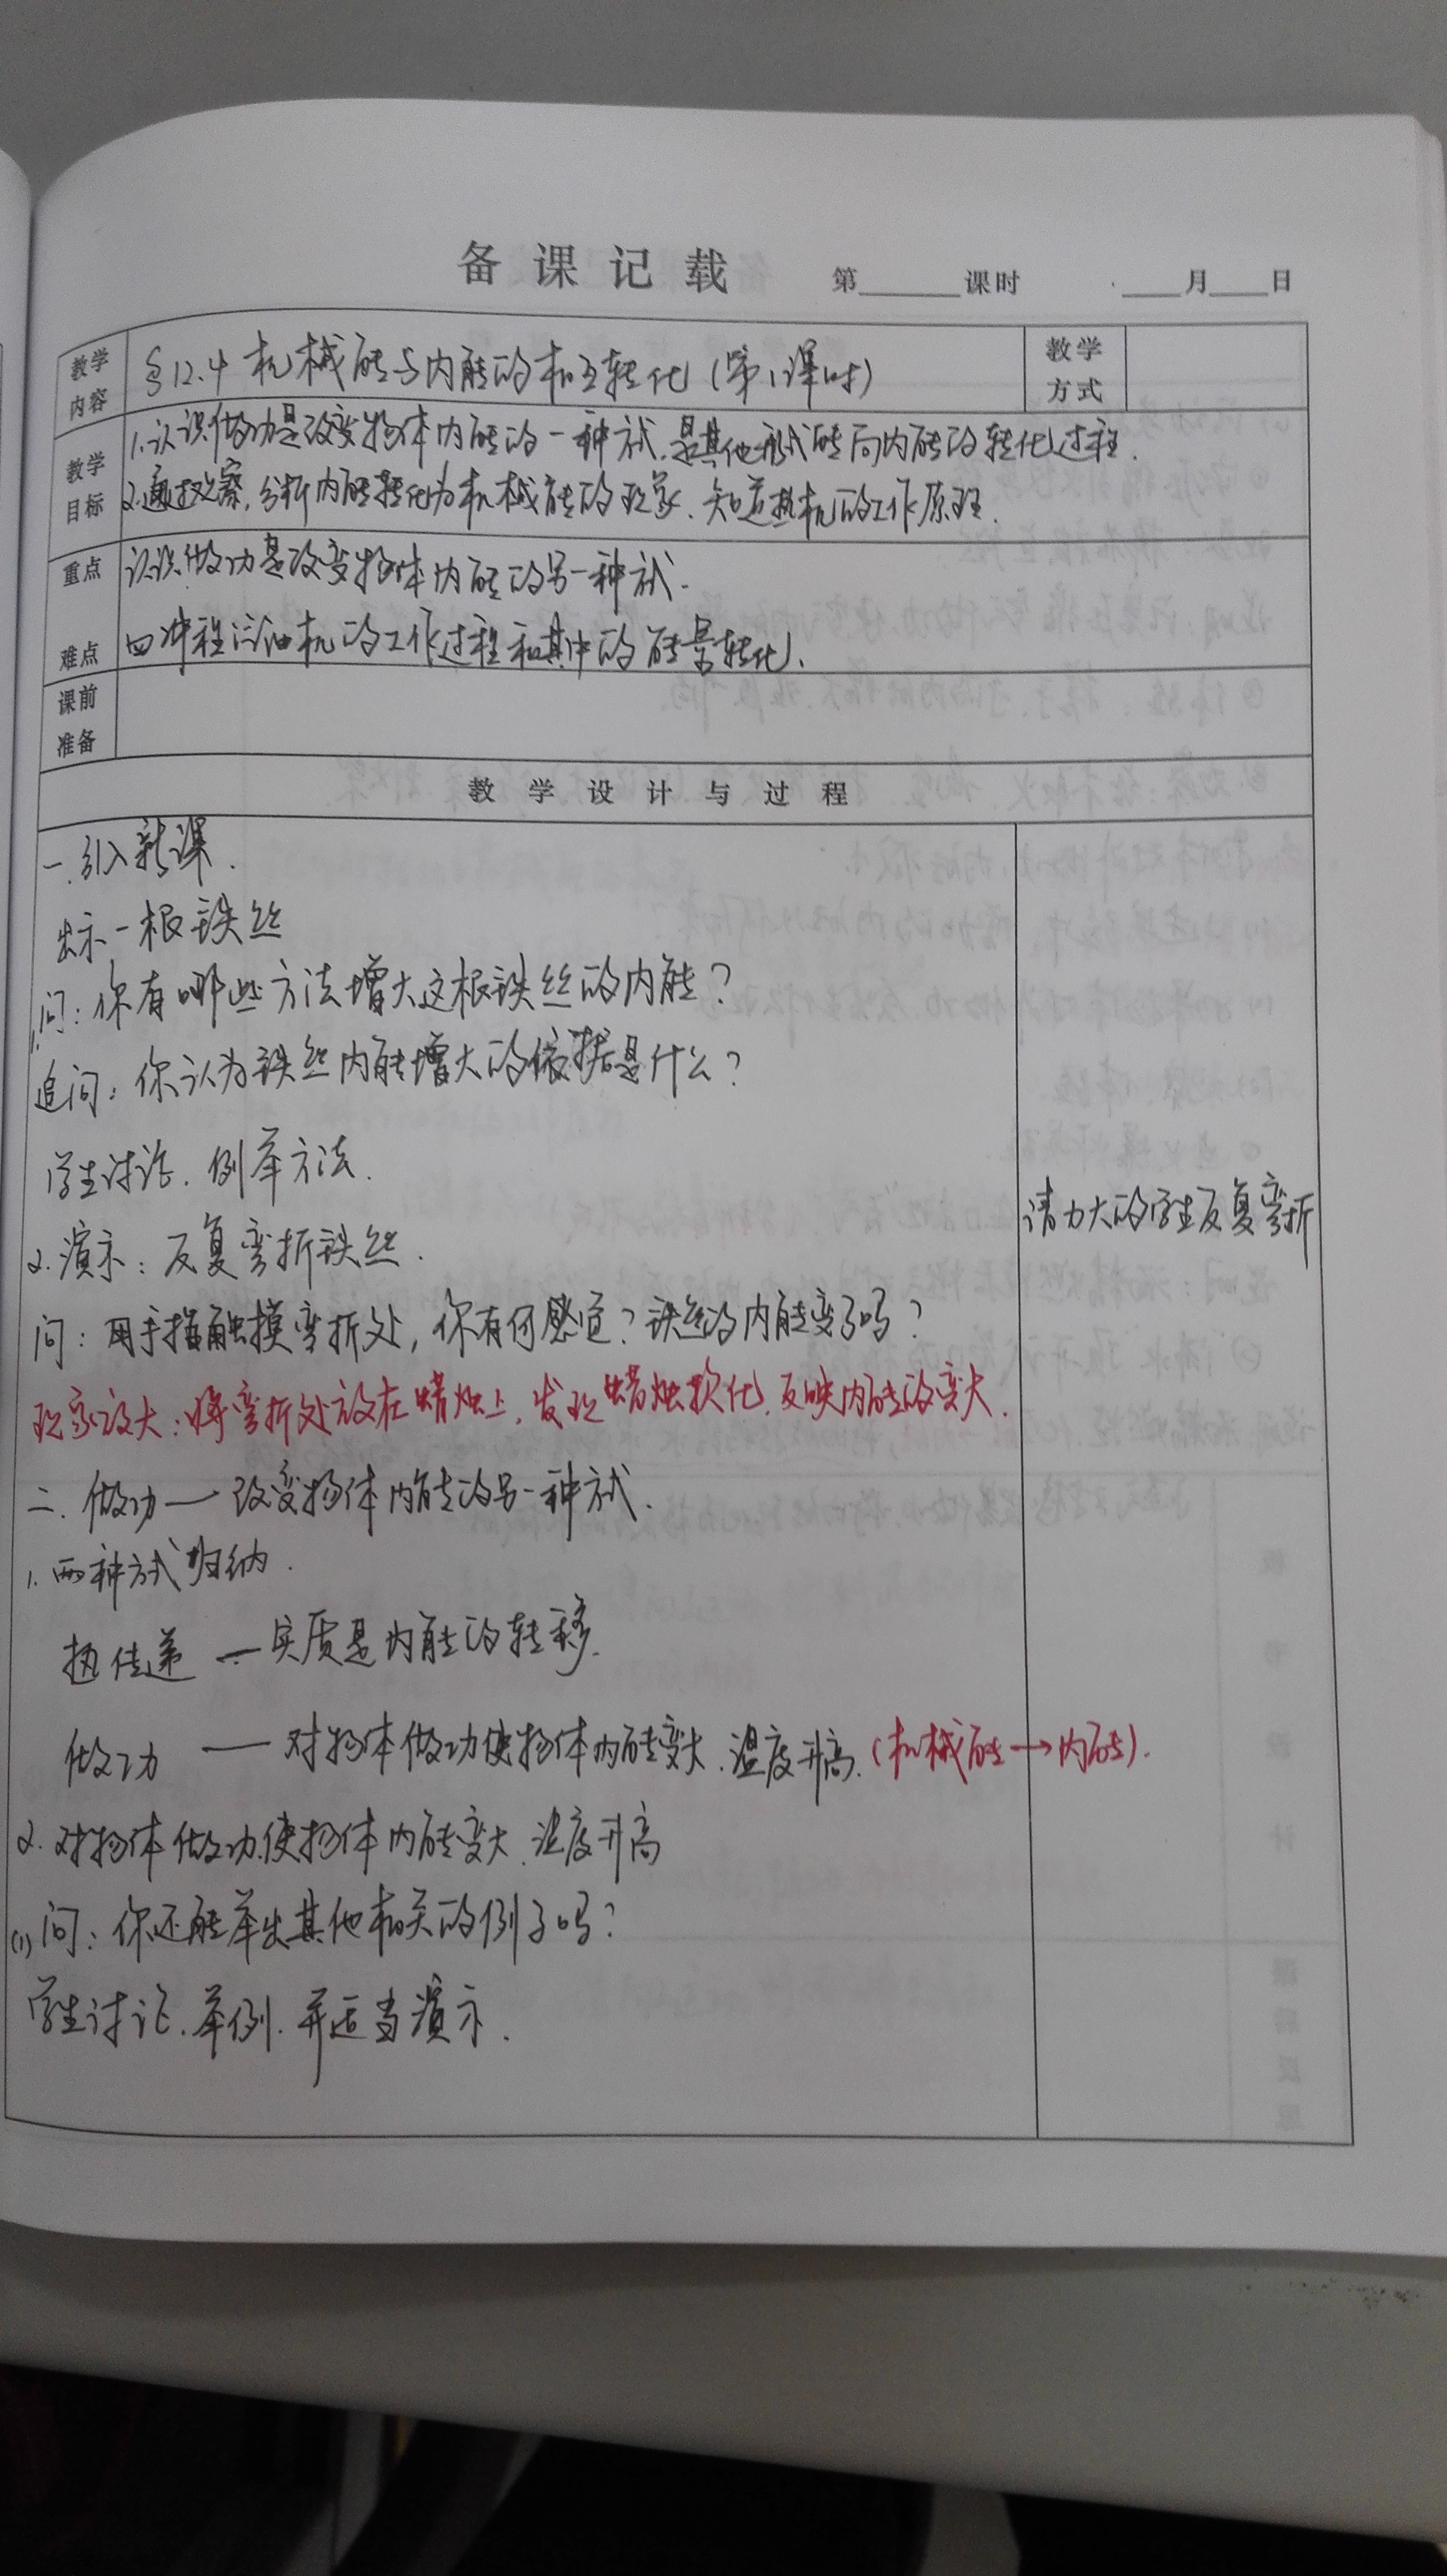 备课记载 第____课时 ____月____日
教学内容 §12.4 机械能与内能的相互转化(第1课时) 教学方式
教学目标 1.认识做功是改变物体内能的一种方式,是其他形式能向内能的转化过程.
2.通过观察,分析内能转化为机械能的现象,知道热机的工作原理.
重点 认识做功是改变物体内能的另一种方式.
难点 四冲程汽油机的工作过程和其中的能量转化.
课前准备
教学设计与过程
一.引入新课.
出示一根铁丝
1.问:你有哪些方法增大这根铁丝的内能?
追问:你认为铁丝内能增大的依据是什么?
学生讨论.例举方法.
2.演示:反复弯折铁丝.
请力大的学生反复弯折
问:用手指触摸弯折处,你有何感觉?铁丝的内能变了吗?
现象放大:将弯折处放在蜡烛上,发现蜡烛软化,反映内能的变大.
二.做功—改变物体内能的另一种方式.
1.两种方式归纳.
热传递—实质是内能的转移.
做功 — 对物体做功使物体内能变大.温度升高.(机械能→内能).
2.对物体做功.使物体内能变大.温度升高
(1)问:你还能举出其他相关的例子吗?
学生讨论.举例.并适当演示.